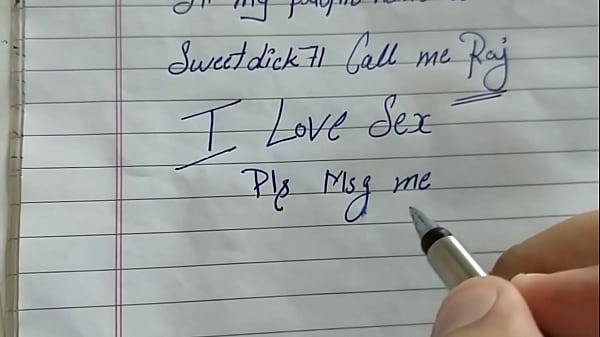 my
Sweetdick71 Call me Raj
I Love Sex
Pls Msg me